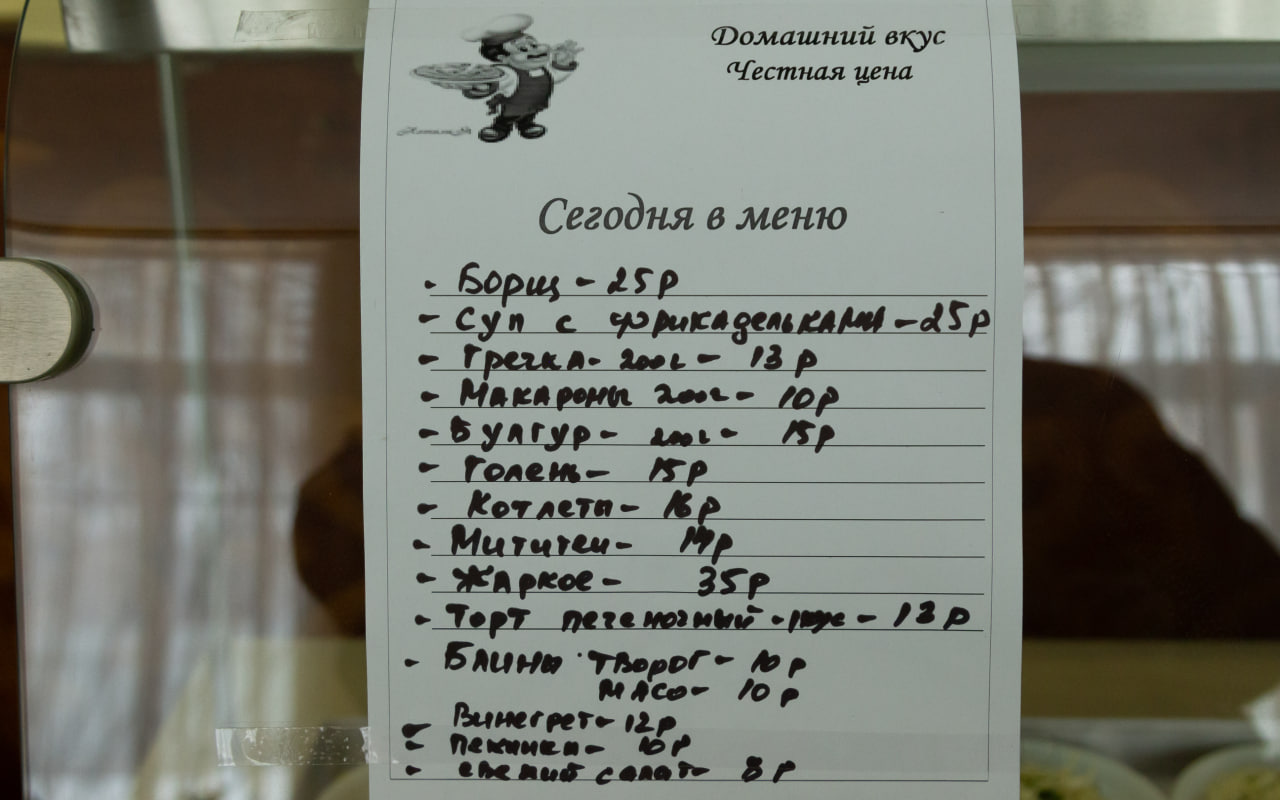 Домашний вкус
Честная цена
Сегодня в меню
- Борщ - 25р
- Суп с фрикадельками - 25р
- Гречка - 200г - 13р
- Макароны 200г - 10р
- Булгур - 200г - 15р
- Голень - 15р
- Котлеты - 16р
- Мититеи - 14р
- Жаркое - 35р
- Торт печеночный - 13р
- Блины творог - 10р
мясо - 10р
- Винегрет - 12р
- пекинка - 10р
- свежий салат - 8р